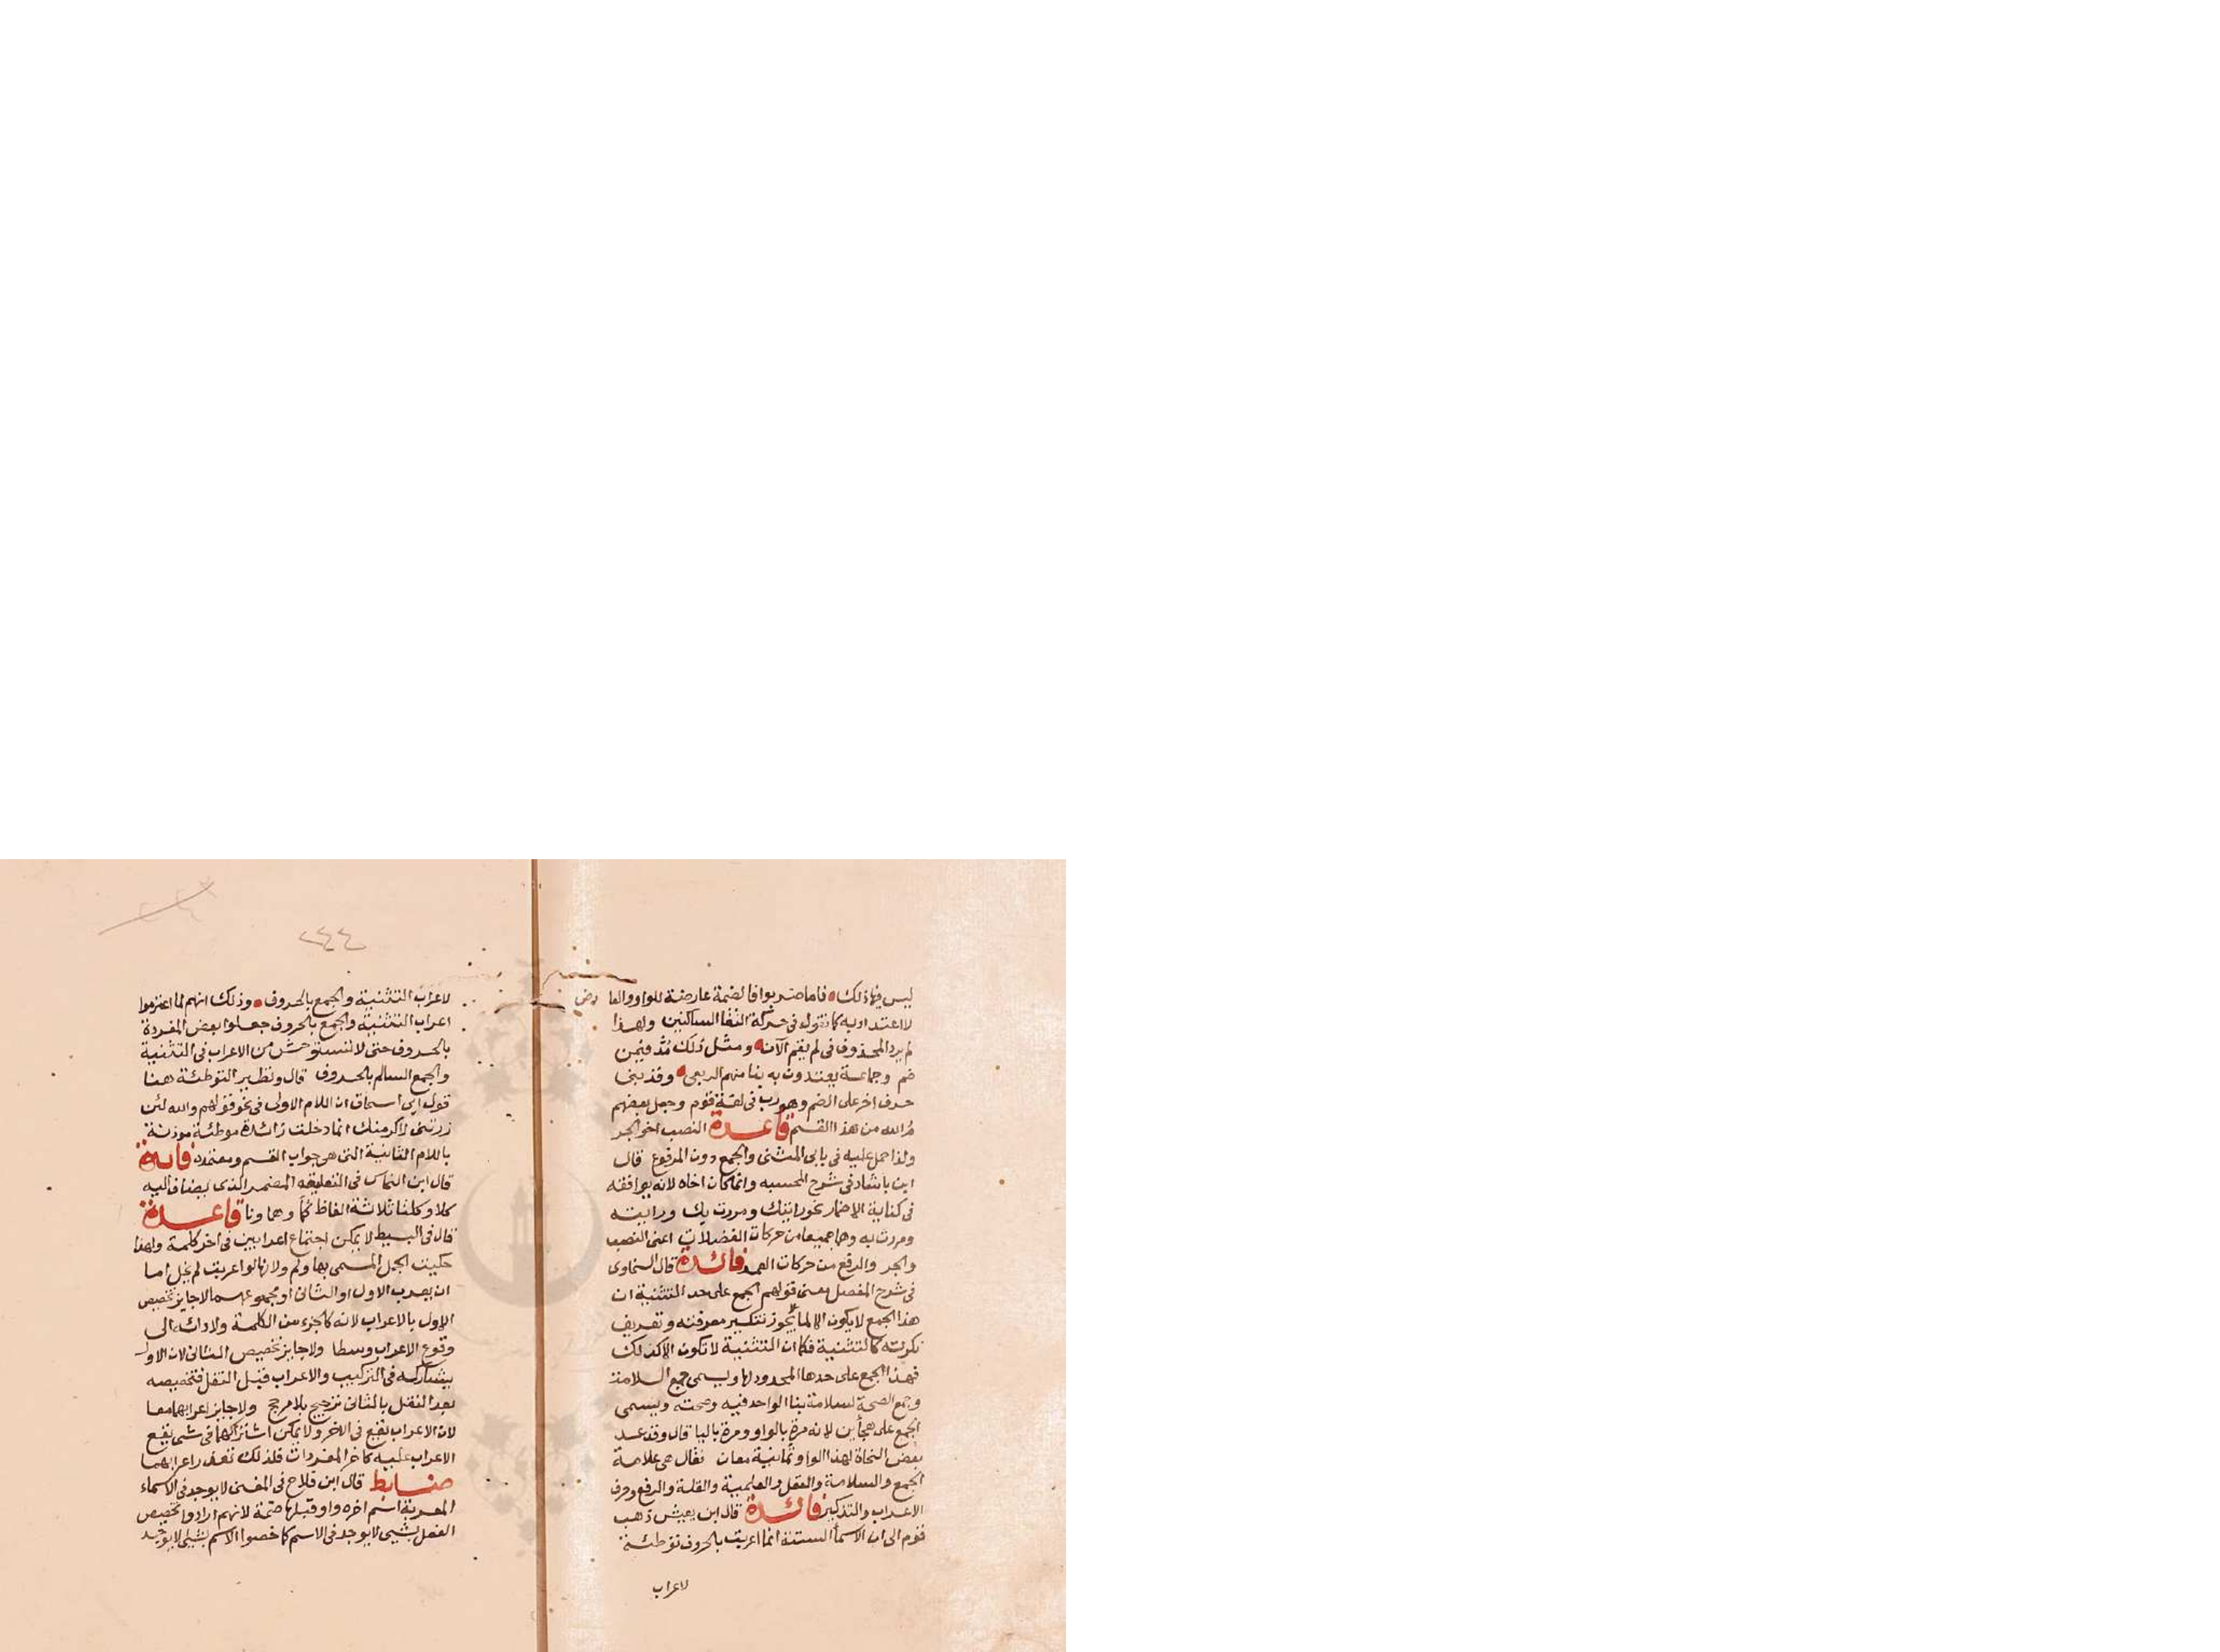 ليس فيها ذلك فاما ضربوا فالضمة عارضة للواو والعا رض
لا اعتداد به كما نقول في حركة التقا الساكنين ولهذا
لم يرد المحذوف في لم يقم الآن ومثل ذلك مذ فيمن
ضم وجماعة يعتدون به بنا منهم الربعي وقد بني
حرف اخر على الضم وهو رب في لغة قوم وجعل بعضهم
مُ الله من هذا القسم قاعدة النصب اخو الجر
ولذا حمل عليه في بابي المثنى والجمع دون المرفوع قال
ابن بابشاذ في شرح المحسبه وانما كان اخاه لانه يوافقه
في كناية الاضمار نحو رايتك ومررت بك ورايته
ومررت به وهما جميعا من حركات الفضلات اعني النصب
والجر والرفع من حركات العمد فائدة قال السخاوى
في شرح المفصل معنى قولهم الجمع على حد التثنية ان
هذا الجمع لا يكون الا لما يجوز تنكير معرفته وتعريف
نكرته كالتثنية فكما ان التثنية لا تكون الا كذلك
فهذا الجمع على حدها المحدود لها ويسمى جمع السلامة
وجمع الصحة لسلامة بنا الواحد فيه وصحته ويسمى
الجمع على هجأين لانه مرة بالواو ومرة باليا قال وقد عد
بعض النحاة لهذا الواو ثمانية معان فقال هي علامة
الجمع والسلامة والعقل والعلمية والقلة والرفع وحرف
الاعراب والتذكير فائدة قال ابن يعيش ذهب
قوم الى ان الاسمأ الستة انما اعربت بالحروف توطئة
لاعراب
٢٤٤
لاعراب التثنية والجمع بالحروف وذلك انهم لما اعتزموا
اعراب التثنية والجمع بالحروف جعلوا بعض المفردة
بالحروف حتى لا تستوحش من الاعراب في التثنية
والجمع السالم بالحروف قال ونظير التوطئة هنا
قول ابي اسحاق ان اللام الاولى في نحو قولهم والله لئن
زرتني لاكرمنك انما دخلت زائدة موطئة موذنة
باللام الثانية التي هي جواب القسم ومعتمده فائدة
قال ابن النحاس في التعليقه المضمر الذى يضاف اليه
كلا وكلتا ثلاثة الفاظ كما وهما ونا قاعدة
قال في البسيط لا يمكن اجتماع اعرابين في اخر كلمة ولهذا
حكيت الجمل المسمى بها ولانها لو اعربت لم يخل اما
ان يعرب الاول او الثانى او مجموعهما لا جايز تخصيص
الاول بالاعراب لانه كالجزء من الكلمة ولادائه الى
وقوع الاعراب وسطا ولا جايز تخصيص الثانى لان الاول
يشاركه في التركيب والاعراب قبل النقل فتخصيصه
بعد النقل بالثانى ترجيح بلا مرجح ولا جايز اعرابهما معا
لان الاعراب يقع في الاخر ولا يمكن اشتراكهما في شى يقع
الاعراب عليه كاخر المفردات فلذلك تعذر اعرابهما
ضابط قال ابن فلاح في المغنى لا يوجد في الاسماء
المعربة اسم اخره واو قبلها ضمة لانهم ارادوا تخصيص
الفعل بشيى لا يوجد في الاسم كما خصوا الاسم بشيى لا يوجد